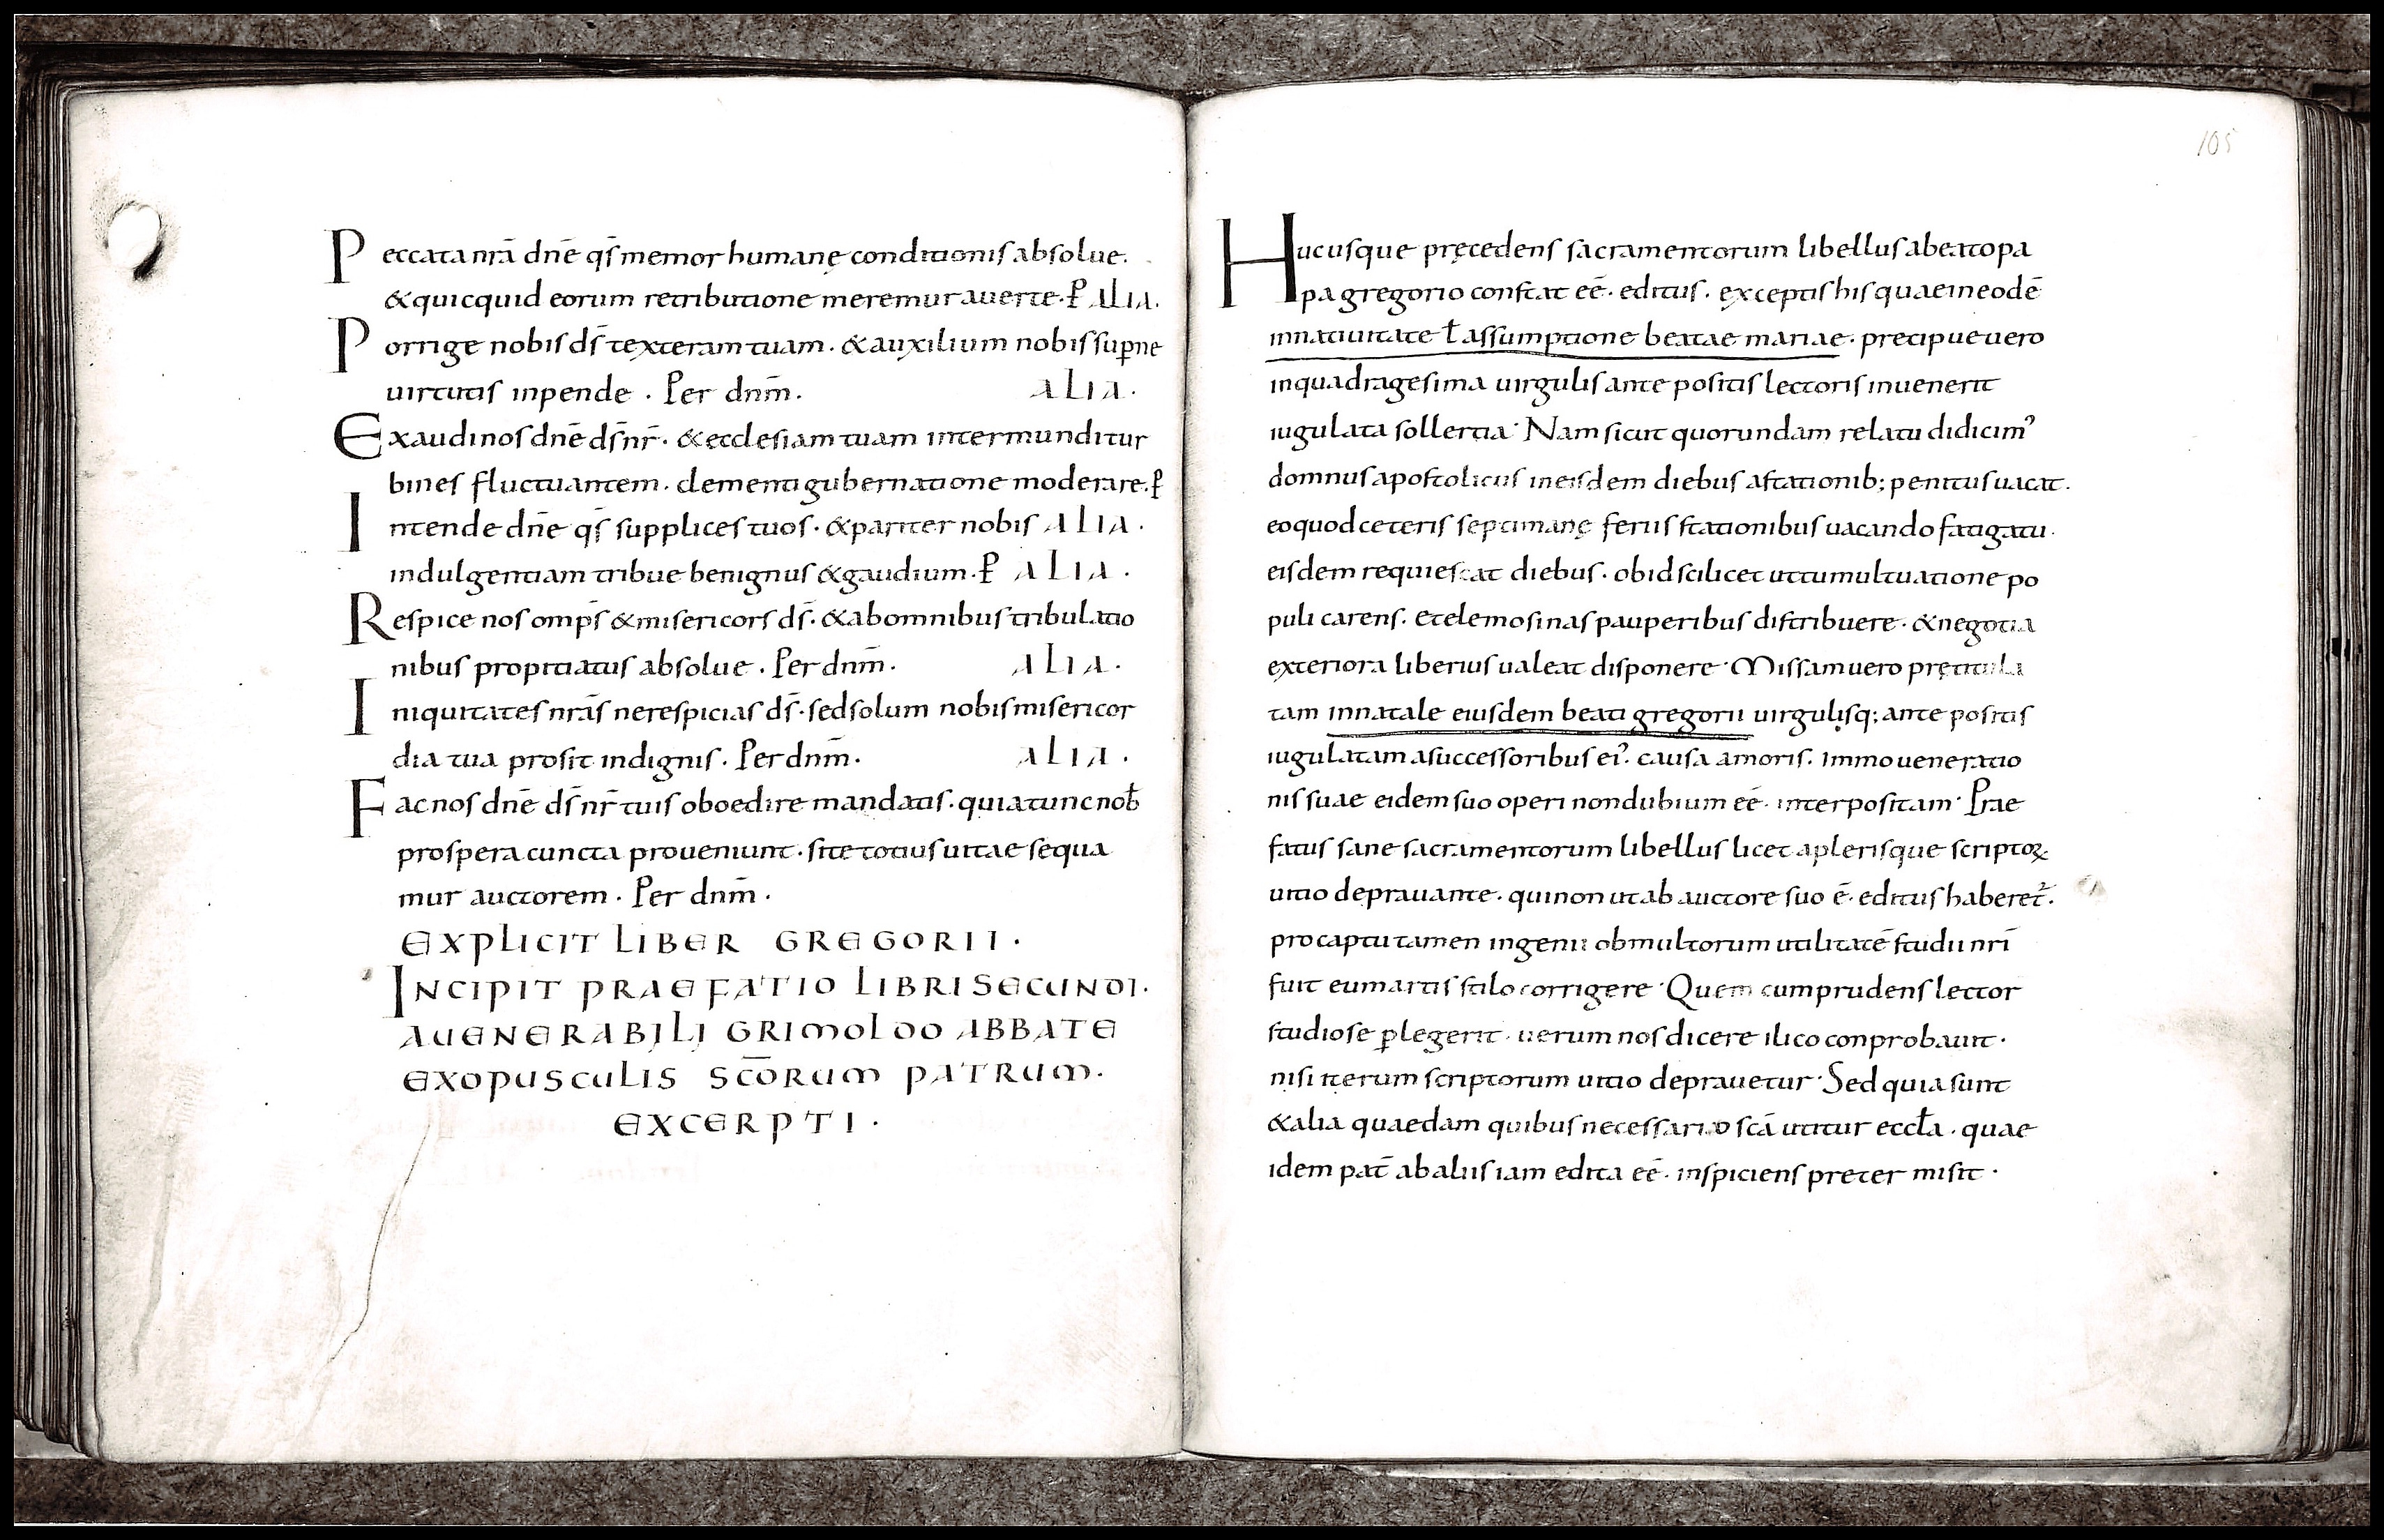 Peccata nr̄ā dn̄e qs̄ memor humanę conditionis absolue.
& quicquid eorum retributione meremur auerte. P̄ ALIA.
Porrige nobis ds̄ texteram tuam. & auxilium nobis sup̱ne
uirtutis inpende. Per dnm̄. ALIA.
Exaudi nos dn̄e ds̄ nr̄. & ecclesiam tuam inter mundi tur
bines fluctuantem. clementi gubernatione moderare. P̄
Intende dn̄e qs̄ supplices tuos. & pariter nobis ALIA.
indulgentiam tribue benignus & gaudium. P̄ ALIA.
Respice nos omps̄ & misericors ds̄. & ab omnibus tribulatio
nibus propitiatus absolue. Per dnm̄. ALIA.
Iniquitates nr̄ās ne respicias ds̄. sed solum nobis misericor
dia tua prosit indignis. Per dnm̄. ALIA.
Fac nos dn̄e ds̄ nr̄ tuis oboedire mandatis. quia tunc nob̄
prospera cuncta proueniunt. si te totius uitae sequa
mur auctorem. Per dnm̄.
EXPLICIT LIBER GREGORII.
INCIPIT PRAEFATIO LIBRI SECUNDI.
A UENERABILI GRIMOLDO ABBATE
EX OPUSCULIS SC̄ORUM PATRUM.
EXCERPTI.
105
Hucusque pręcedens sacramentorum libellus a beato pa
pa gregorio constat eē. editus. exceptis his quae in eodē
in natiuitate ł assumptione beatae mariae. precipue uero
in quadragesima uirgulis ante positis lectoris inuenerit
iugulata sollertia. Nam sicut quorundam relatu didicim᾽
domnus apostolicus in eisdem diebus a stationib; penitus uacat.
eo quod ceteris septimanę feriis stationibus uacando fatigatu.
eisdem requiescat diebus. ob id scilicet ut tumultuatione po
puli carens. et elemosinas pauperibus distribuere. & negotia
exteriora liberius ualeat disponere. Missam uero prętitula
tam in natale eiusdem beati gregorii uirgulisq; ante positis
iugulatam a successoribus ei᾽. causa amoris. immo ueneratio
nis suae eidem suo operi non dubium eē. interpositam. Prae
fatus sane sacramentorum libellus licet a plerisque scriptoꝝ
uitio deprauante. qui non ut ab auctore suo ē. editus haberet᾽.
pro captu tamen ingenii ob multorum utilitatē studii nr̄i
fuit eum artis stilo corrigere. Quem cum prudens lector
studiose ꝑlegerit. uerum nos dicere ilico conprobauit.
nisi iterum scriptorum uitio deprauetur. Sed quia sunt
& alia quaedam quibus necessario scā utitur eccła. quae
idem pat̄ ab aliis iam edita eē. inspiciens preter misit.